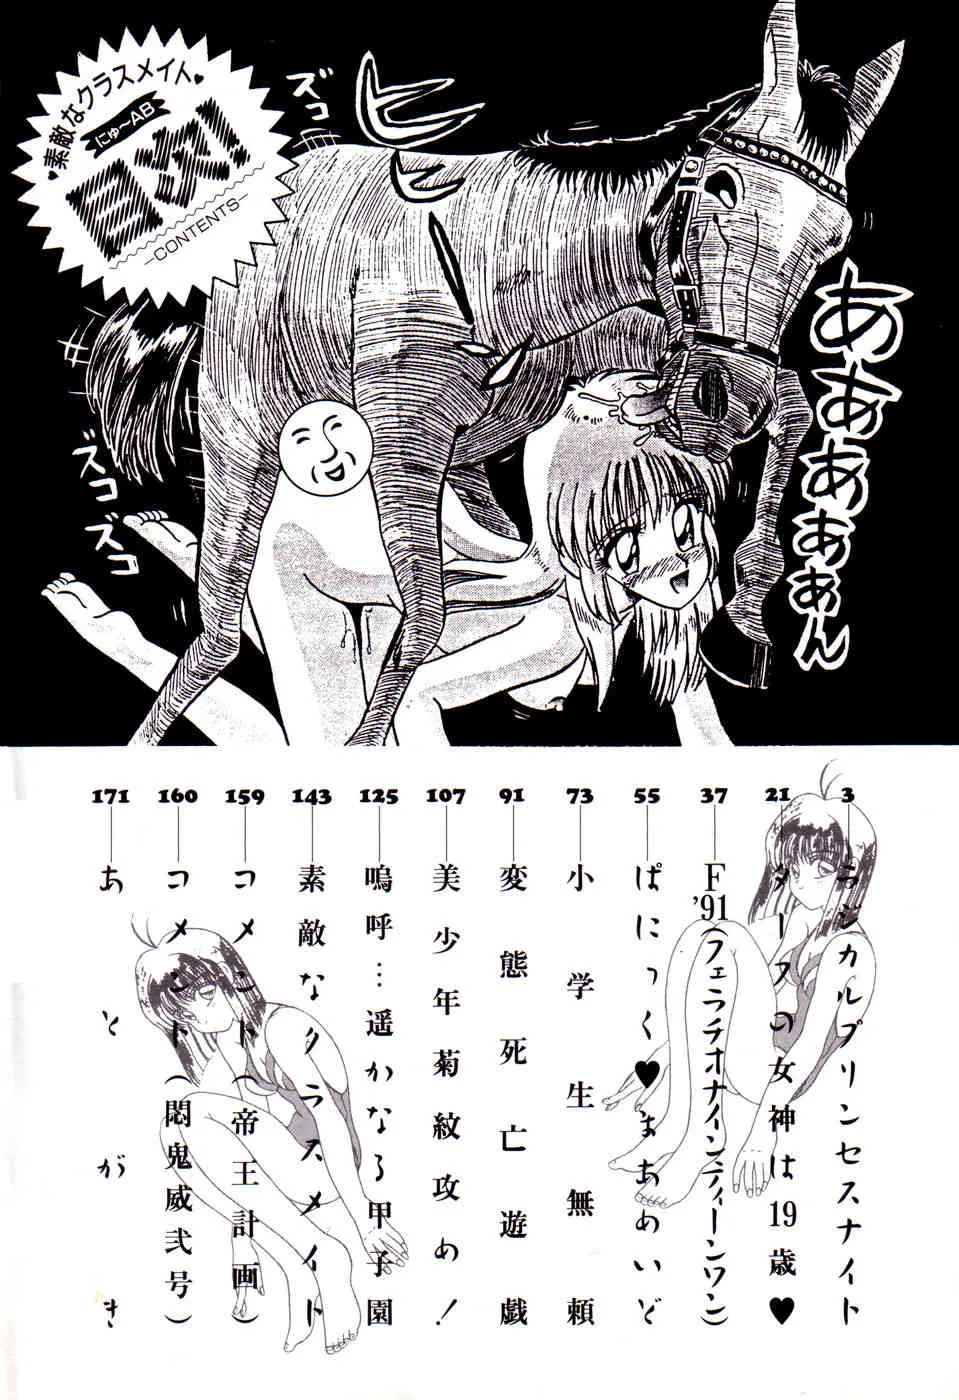 ♥素敵なクラスメイト♥
にゅーAB
目次!
—CONTENTS—
ズコ
ヒヒーン
ズコズコ
あぁあぁぁぁん
3 ラジカルプリンセスナイト
21 ターフの女神は19歳♥
37 F'91(フェラチオナインティーンワン)
55 ぱにっく♥まあめいど
73 小学生無頼
91 変態死亡遊戯
107 美少年菊紋攻め!
125 嗚呼…遥かなる甲子園
143 素敵なクラスメイト
159 コメント(帝王計画)
160 コメント(悶鬼威弐号)
171 あとがき